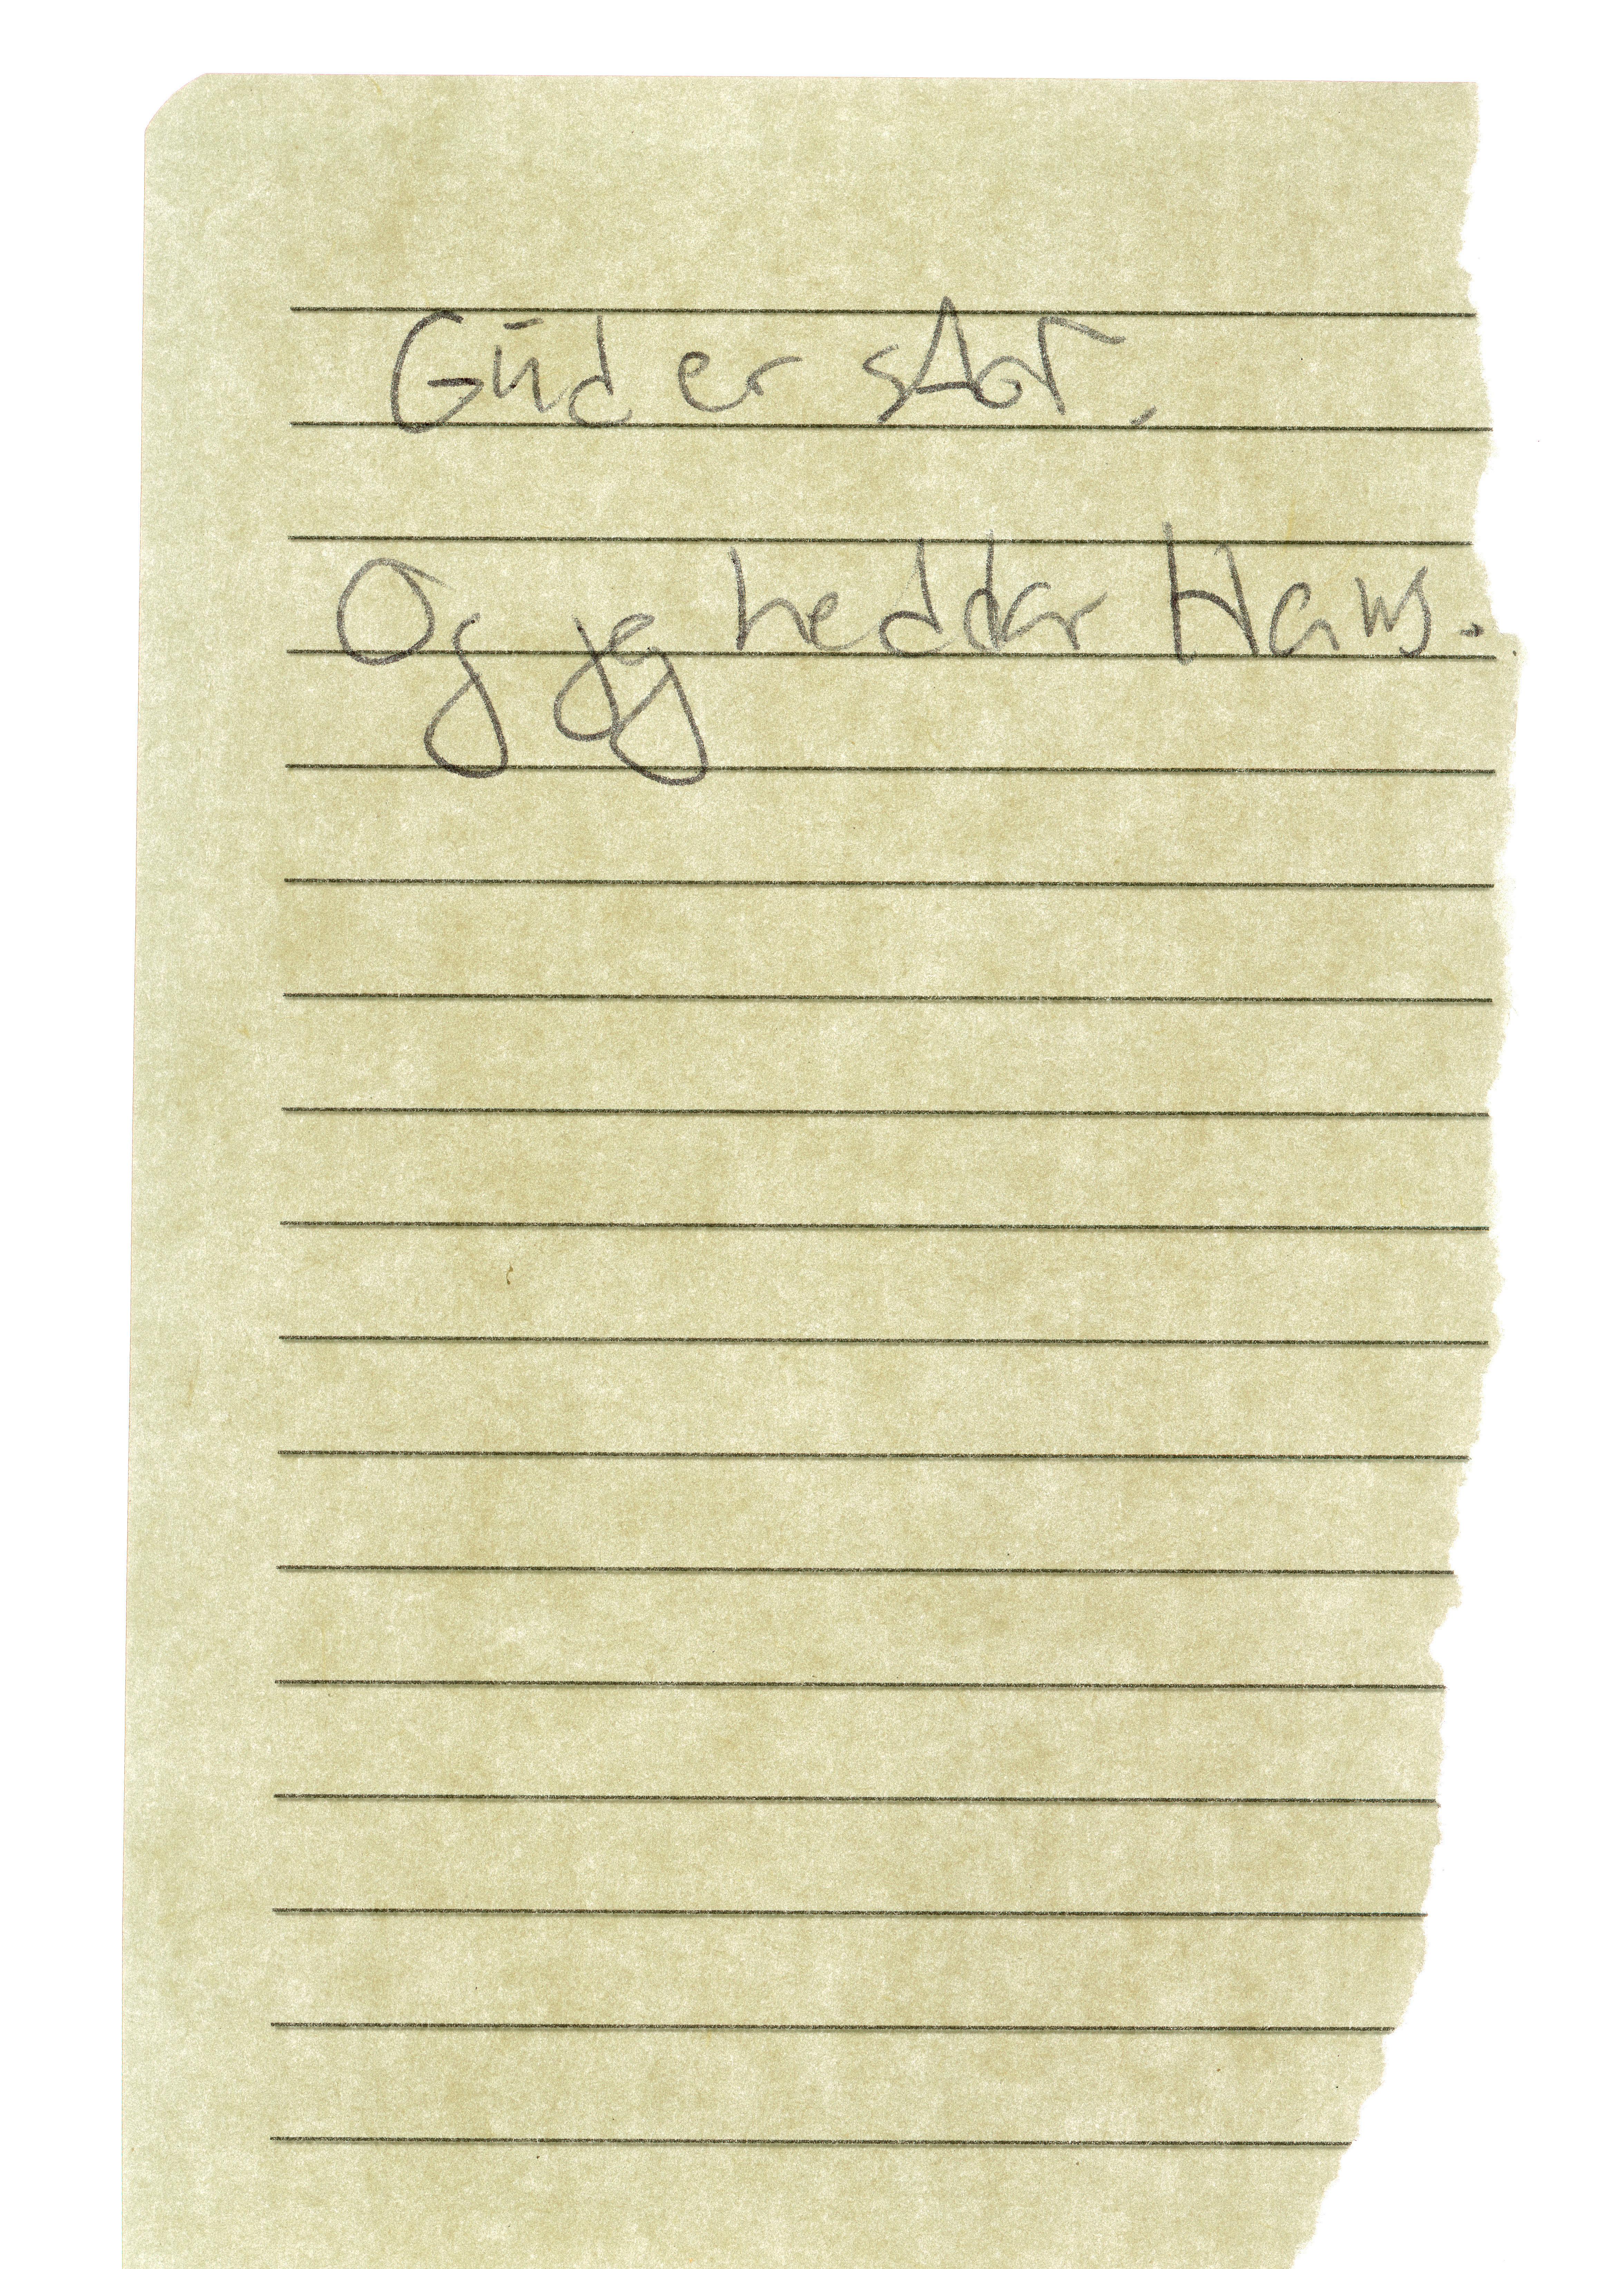 Gud er stor.
Og jeg hedder Hans.